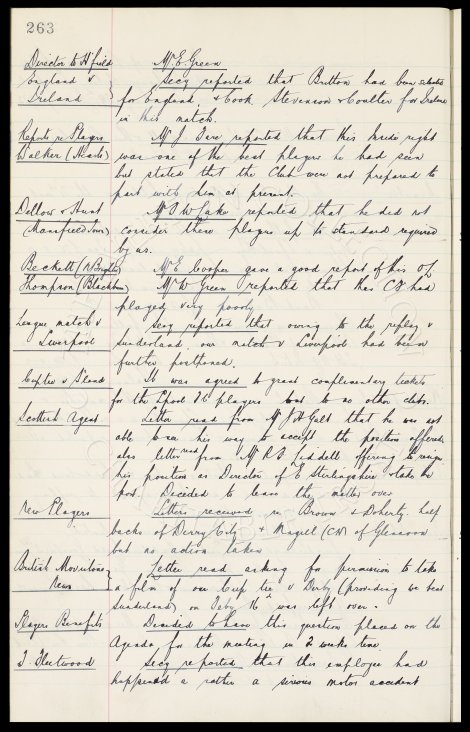 263
Director to H'field Mr E. Green
England v Secy reported that Britton had been selected
Ireland for England, & Cook Stevenson & Coulter for Ireland
in this match.
Reports re Players Mr J. Sere reported that this inside right
Walker (Hearts) was one of the best players he had seen
but stated that the Club were not prepared to
part with him at present.
Dellow & Hunt Mr O W Lake reported that he did not
(Mansfield Town) consider these players up to standard required
by us.
Beckett (N Brighton) Mr E Cooper gave a good report of this OL
Thompson (Blackburn) Mr W Green reported that this CH had
played very poorly
League match v Secy reported that owing to the replay v
Liverpool Sunderland our match v Liverpool had been
further postponed.
Cuptie v S'land It was agreed to grant complimentary tickets
for the L'pool F C players but to no other clubs.
Scottish Agent Letter read from Mr J H Galt that he was not
able to see his way to accept the position offered
also letter read from Mr R S Liddell offering to resign
his position as Director of E Stirlingshire & take the
post. Decided to leave the matter over
New Players Letters received re Brown & Doherty half
backs of Derry City & Magill (CH) of Glenavon
but no action taken
British Movietone Letter read asking for permission to take
News a film of our Cup tie v Derby (providing we beat
Sunderland) on Feby 16th was left over.
Players Benefits Decided to have this question placed on the
Agenda for the meeting in 2 weeks time.
T. Fleetwood Secy reported that this employee had
happened a rather a serious motor accident